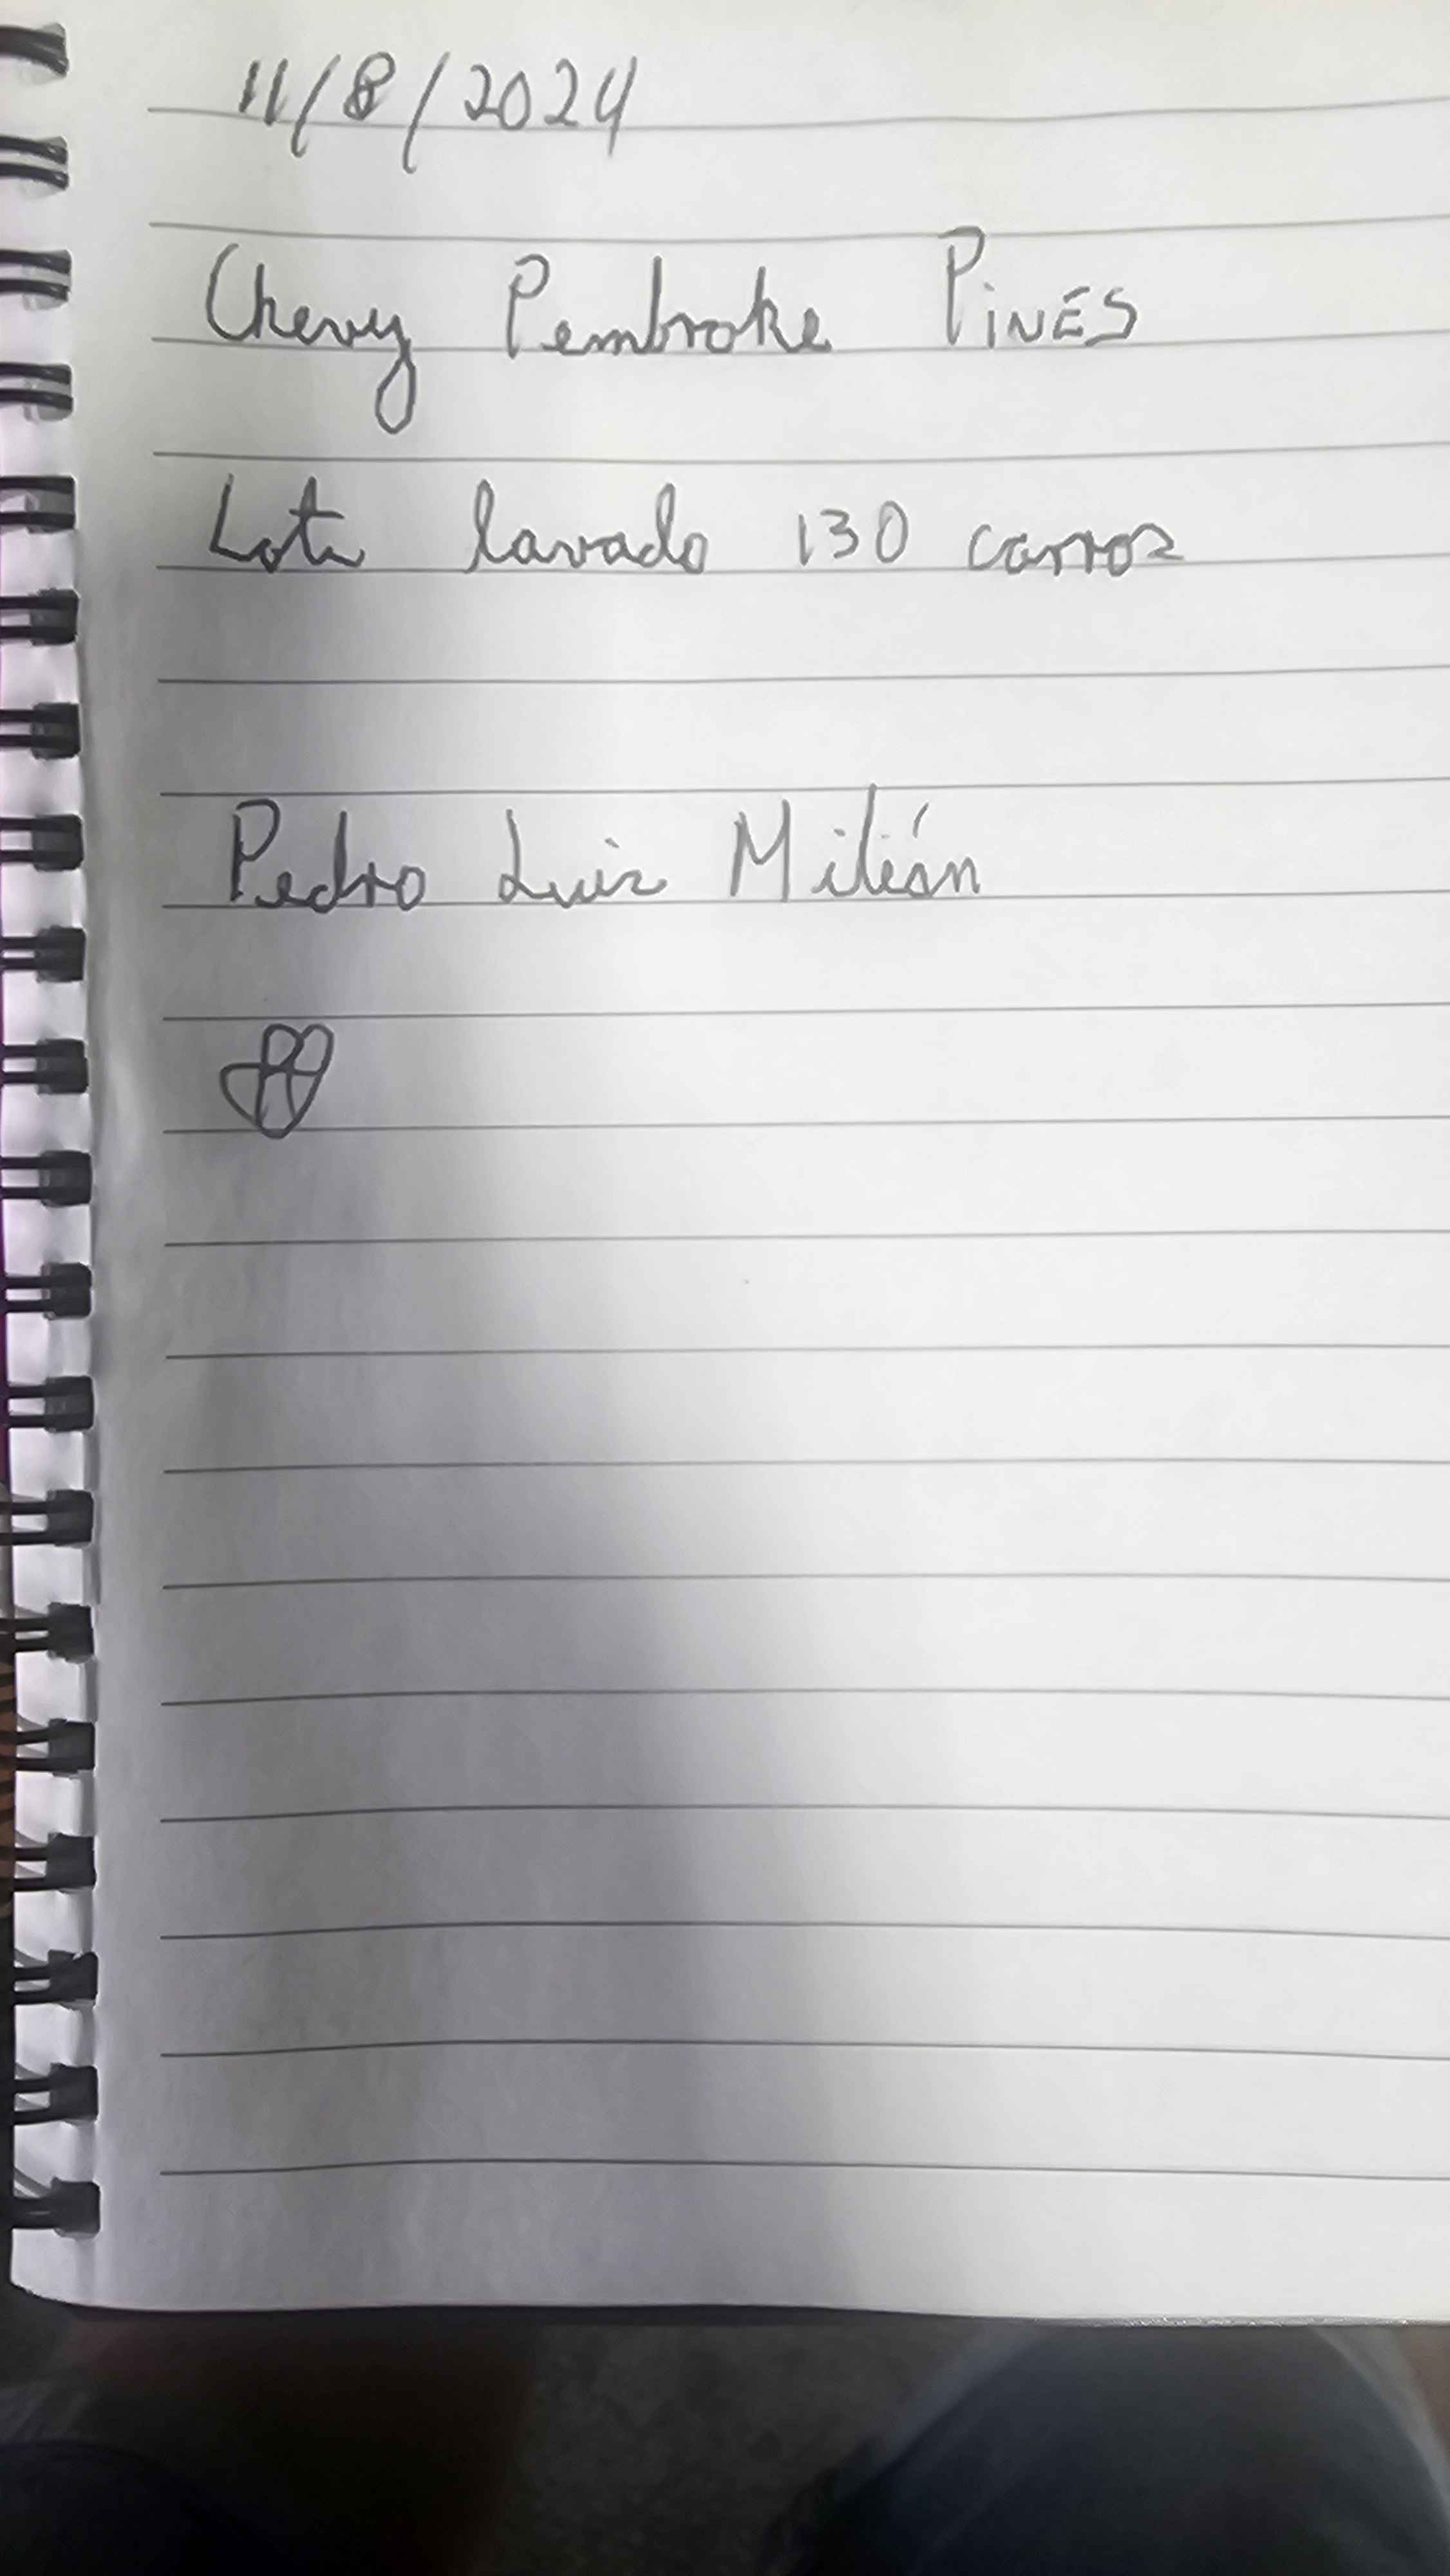 11/8/2024
Chevy Pembroke PINES
Lote lavado 130 carros
Pedro Luis Milián